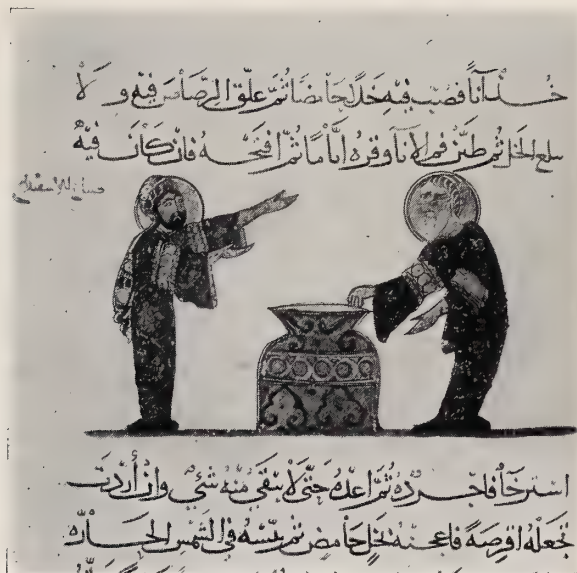 خذ اناً فصب فيه خلا حامضا ثم علق الرصاص فيه ولا
الخل ثم طين فم الانا وقره اياما ثم افتحه فان كان فيه
استرخاً فاجرده ثم اعده حتى لا يبقى منه شيئ وان أردت
تجعله اقرصة فاعجنه بخل حامض ثم يبسه في الشمس الحارّه